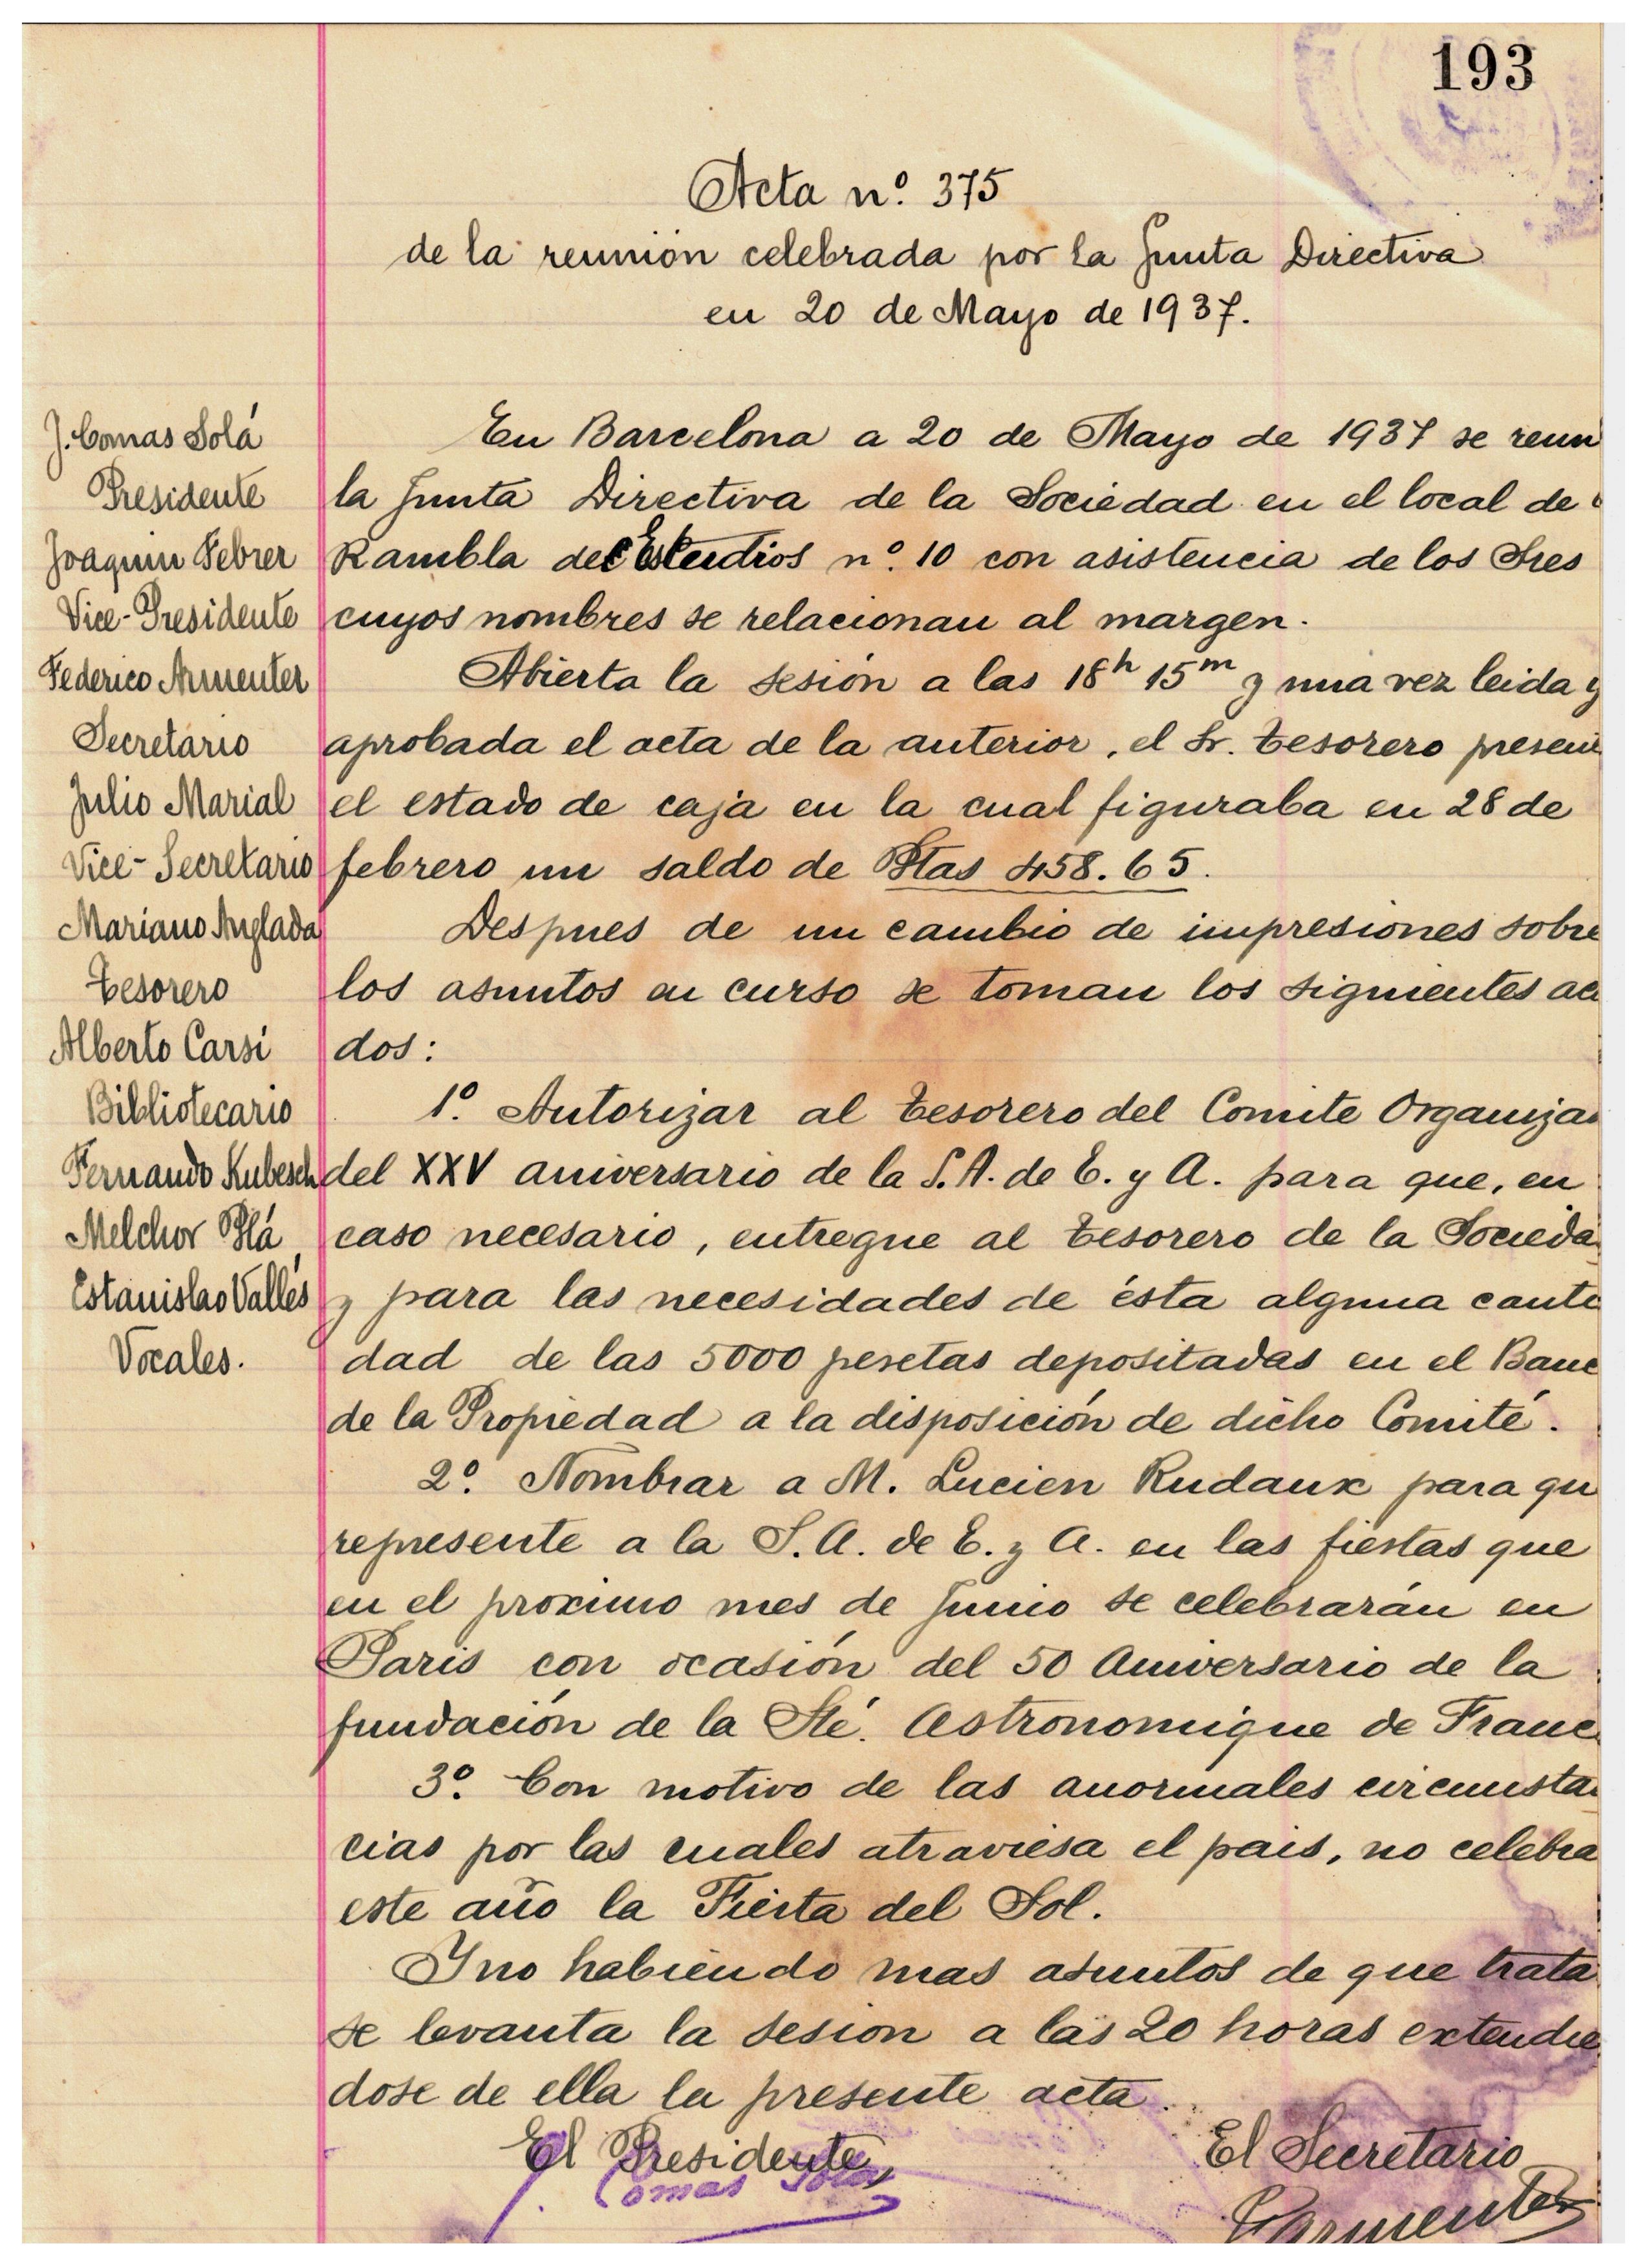 193
Acta nº. 375
de la reunión celebrada por la Junta Directiva
en 20 de Mayo de 1937.
J. Comas Solá
Presidente
Joaquin Febrer
Vice-Presidente
Federico Armenter
Secretario
Julio Marial
Vice-Secretario
Mariano Anglada
Tesorero
Alberto Carsí
Bibliotecario
Fernando Kubesch
Melchor Plá
Estanislao Vallés
Vocales.
En Barcelona a 20 de Mayo de 1937 se reun
la Junta Directiva de la Sociedad en el local de
Rambla del Estudios nº. 10 con asistencia de los Sres
cuyos nombres se relacionan al margen.
Abierta la sesión a las 18h 15m y una vez leida y
aprobada el acta de la anterior, el Sr. Tesorero presen
el estado de caja en la cual figuraba en 28 de
febrero un saldo de Ptas 458.65.
Despues de un cambio de impresiones sobre
los asuntos en curso se toman los siguientes acu
dos:
1º. Autorizar al Tesorero del Comite Organiza
del XXV aniversario de la S.A. de E. y A. para que, en
caso necesario, entregue al Tesorero de la Socieda
y para las necesidades de ésta alguna canti
dad de las 5000 pesetas depositadas en el Banc
de la Propiedad a la disposición de dicho Comité.
2º. Nombrar a M. Lucien Rudaux para qu
represente a la S.A. de E. y A. en las fiestas que
en el proximo mes de Junio se celebrarán en
Paris con ocasión del 50 Aniversario de la
fundación de la Sté. Astronomique de Franc
3º. Con motivo de las anormales circunsta
cias por las cuales atraviesa el pais, no celebra
este año la Fiesta del Sol.
Y no habiendo mas asuntos de que trata
se levanta la sesion a las 20 horas extendie
dose de ella la presente acta.
El Presidente, El Secretario
J. Comas Solá
F. Armenter